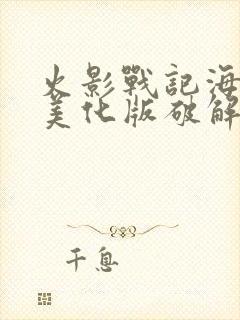 火影戰記海
美化版破解
千息